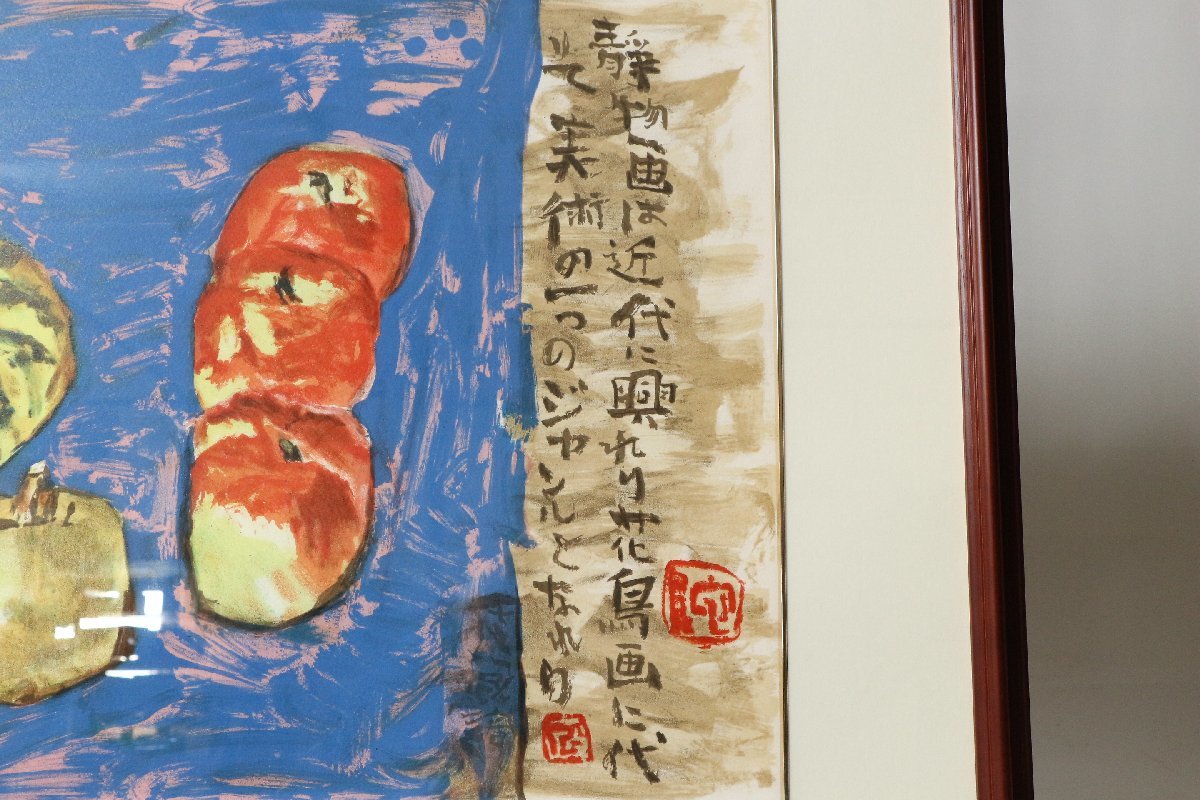 静物画は近代に興れり花鳥画に代
りて美術の一つのジャンルとなれり